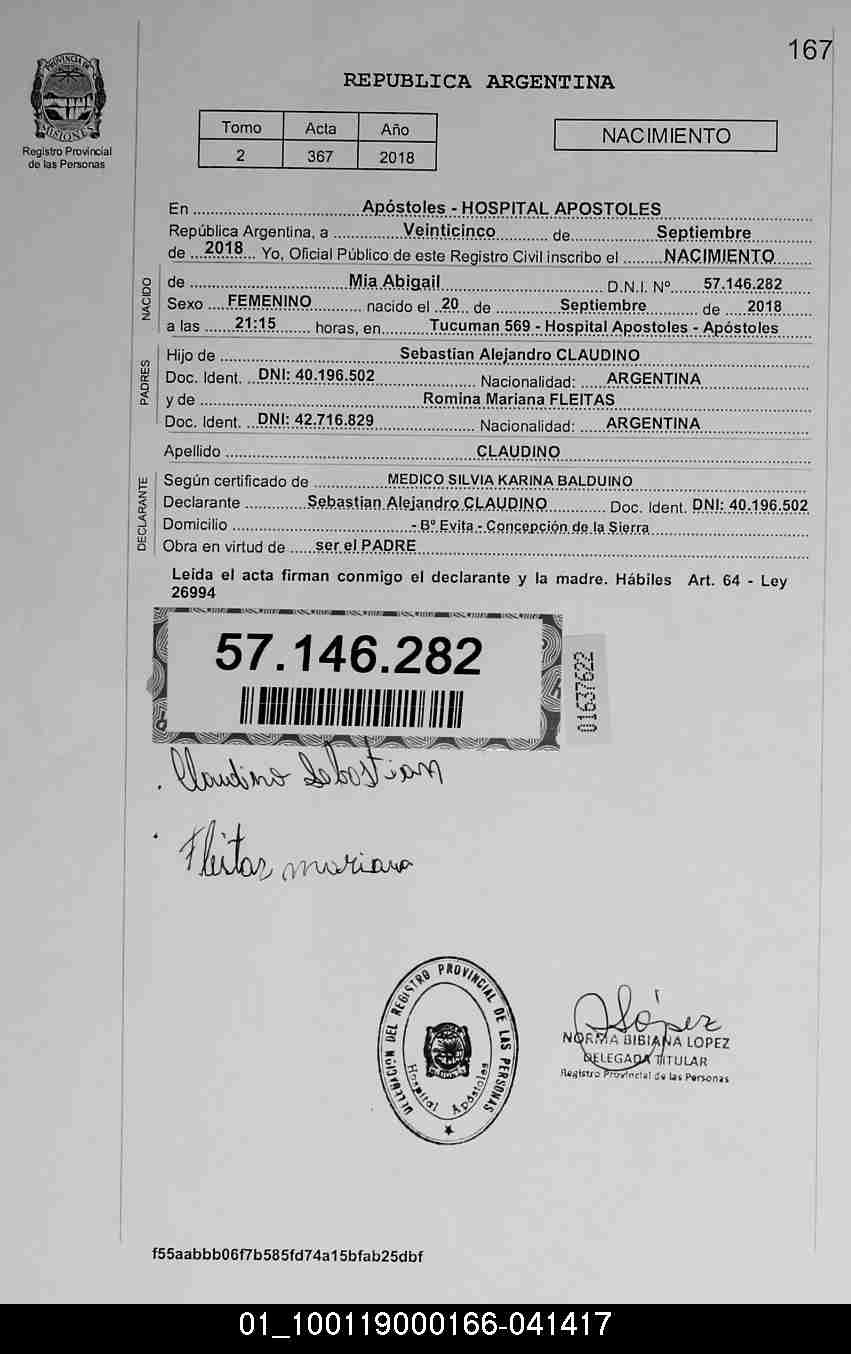 167
PROVINCIA DE
MISIONES
Registro Provincial
de las Personas
REPUBLICA ARGENTINA
Tomo Acta Año
2 367 2018
NACIMIENTO
En Apóstoles - HOSPITAL APOSTOLES
República Argentina, a Veinticinco de Septiembre
de 2018 Yo, Oficial Público de este Registro Civil inscribo el NACIMIENTO
NACIDO
de Mia Abigail D.N.I. Nº 57.146.282
Sexo FEMENINO nacido el 20 de Septiembre de 2018
a las 21:15 horas, en Tucuman 569 - Hospital Apostoles - Apóstoles
PADRES
Hijo de Sebastian Alejandro CLAUDINO
Doc. Ident. DNI: 40.196.502 Nacionalidad: ARGENTINA
y de Romina Mariana FLEITAS
Doc. Ident. DNI: 42.716.829 Nacionalidad: ARGENTINA
Apellido CLAUDINO
DECLARANTE
Según certificado de MEDICO SILVIA KARINA BALDUINO
Declarante Sebastian Alejandro CLAUDINO Doc. Ident. DNI: 40.196.502
Domicilio - Bº Evita - Concepción de la Sierra
Obra en virtud de ser el PADRE
Leida el acta firman conmigo el declarante y la madre. Hábiles Art. 64 - Ley
26994
57.146.282
01637622
Claudino Sebastian
Fleitas mariana
DELEGACIÓN DEL REGISTRO PROVINCIAL DE LAS PERSONAS
Hospital Apóstoles
López
NORMA BIBIANA LOPEZ
DELEGADA TITULAR
Registro Provincial de las Personas
f55aabbb06f7b585fd74a15bfab25dbf
01_100119000166-041417